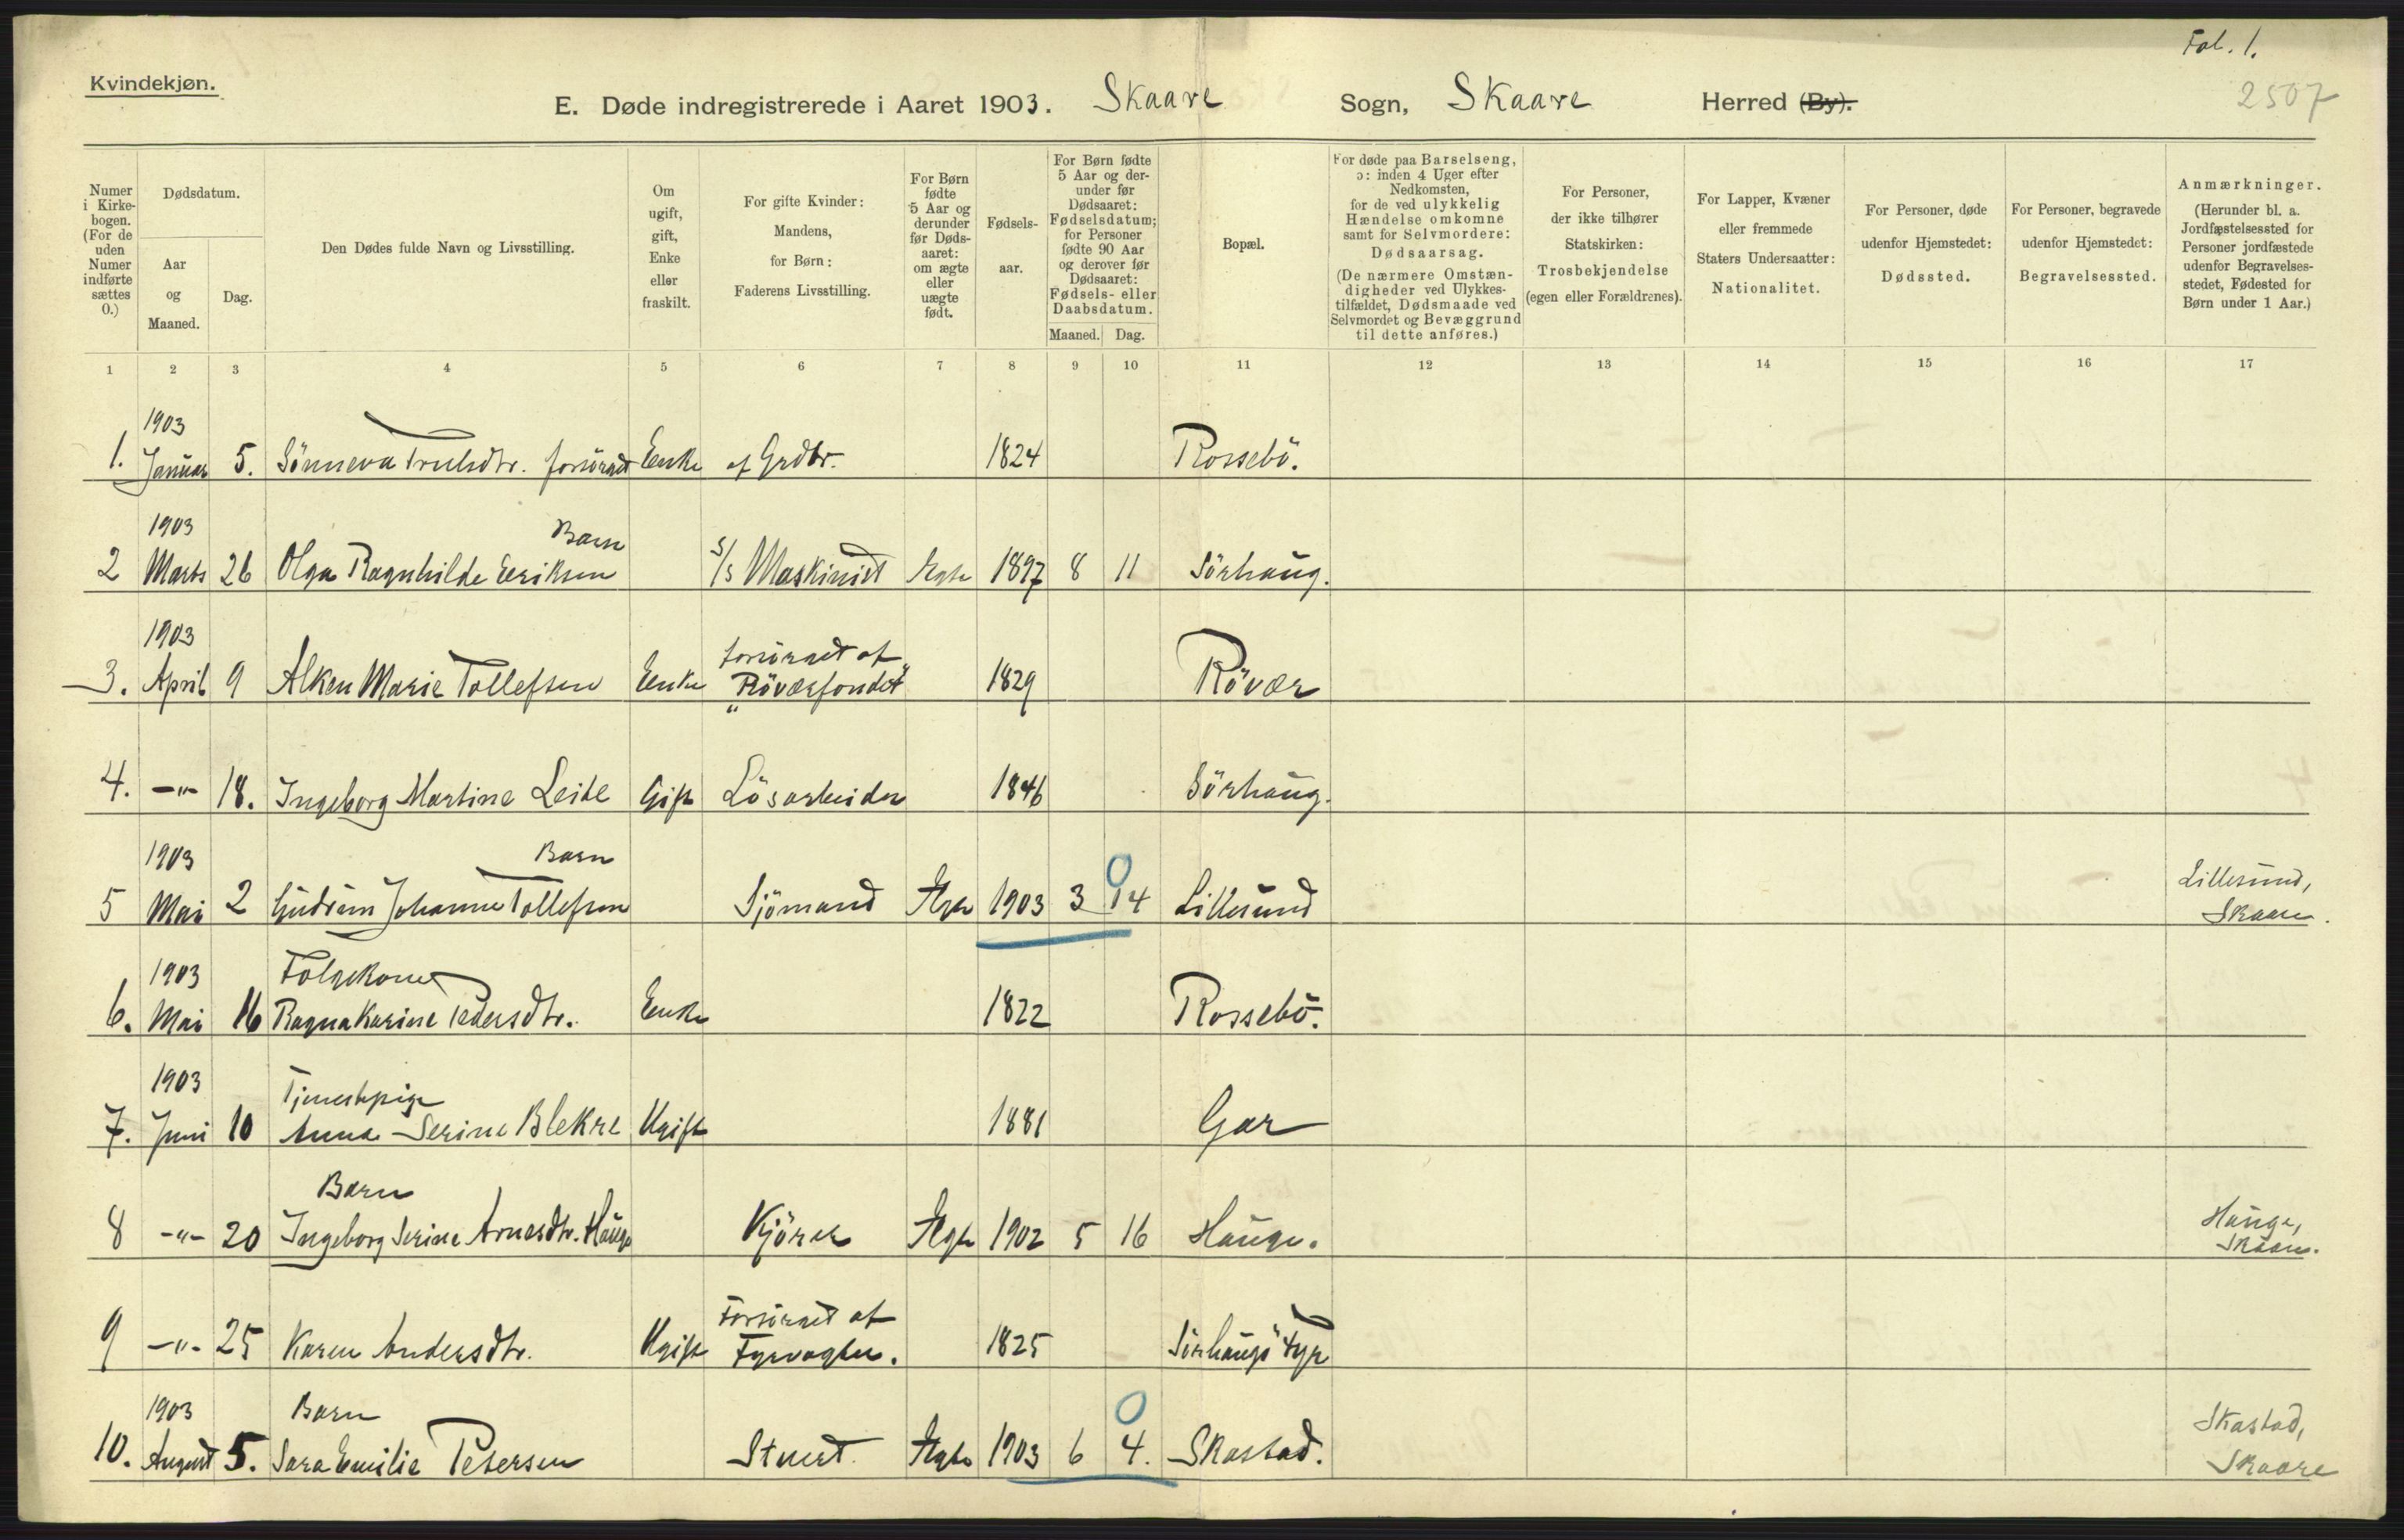 Fol. 1.
Kvindekjøn.
E. Døde indregistrerede i Aaret 1903. Skaare Sogn, Skaare Herred (By).
2507
Numer i Kirkebogen. (For de uden Numer indførte sættes 0.)
Dødsdatum.
Aar og Maaned.
Dag.
Den Dødes fulde Navn og Livsstilling.
Om ugift, gift, Enke eller fraskilt.
For gifte Kvinder: Mandens, for Børn: Faderens Livsstilling.
For Børn fødte 5 Aar og derunder før Dødsaaret: om ægte eller uægte født.
Fødselsaar.
For Børn fødte 5 Aar og derunder før Dødsaaret: Fødselsdatum; for Personer fødte 90 Aar og derover før Dødsaaret: Fødsels- eller Daabsdatum.
Maaned. Dag.
Bopæl.
For døde paa Barselseng, ɔ: inden 4 Uger efter Nedkomsten, for de ved ulykkelig Hændelse omkomne samt for Selvmordere: Dødsaarsag. (De nærmere Omstændigheder ved Ulykkestilfældet, Dødsmaade ved Selvmordet og Bevæggrund til dette anføres.)
For Personer, der ikke tilhører Statskirken: Trosbekjendelse (egen eller Forældrenes).
For Lapper, Kvæner eller fremmede Staters Undersaatter: Nationalitet.
For Personer, døde udenfor Hjemstedet: Dødssted.
For Personer, begravede udenfor Hjemstedet: Begravelsessted.
Anmærkninger. (Herunder bl. a. Jordfæstelsessted for Personer jordfæstede udenfor Begravelsesstedet, Fødested for Børn under 1 Aar.)
1 2 3 4 5 6 7 8 9 10 11 12 13 14 15 16 17
1903
1. Januar 5. Sönneva Trulsdtr. forsörget Enke af Grdbr. 1824 Rossebö.
1903 Barn
2 Marts 26 Olga Ragnhilde Eeriksen S/s Maskinist Ægte 1897 8 11 Sörhaug.
1903 forsörget af
3. April 9 Alken Marie Tollefsen Enke "Röværfondet" 1829 Rövær
4. -"- 18. Ingeborg Martine Leite Gift Lösarbeider 1846 Sörhaug.
1903 Barn 0 Lillesund,
5 Mai 2 Gudrun Johanne Tollefsen Sjömand Ægte 1903 3 14 Lillesund Skaare.
1903 Folgekone
6. Mai 16 Ragna Karine Pedersdtr. Enke 1822 Rossebö.
1903 Tjenestepige
7. Juni 10 Anna Serine Blekre Ugift 1881 Gar
Barn Hauge,
8 -"- 20 Ingeborg Serine Arnesdtr. Hauge Kjörer Ægte 1902 5 16 Hauge. Skaare.
Forsörget af
9 -"- 25 Karen Andersdtr. Ugift Fyrvogter. 1825 Sörhaugs Fyr
1903 Barn 0 Skastad,
10. August 5. Sara Emilie Petersen Stuert. Ægte 1903 6 4. Skastad. Skaare